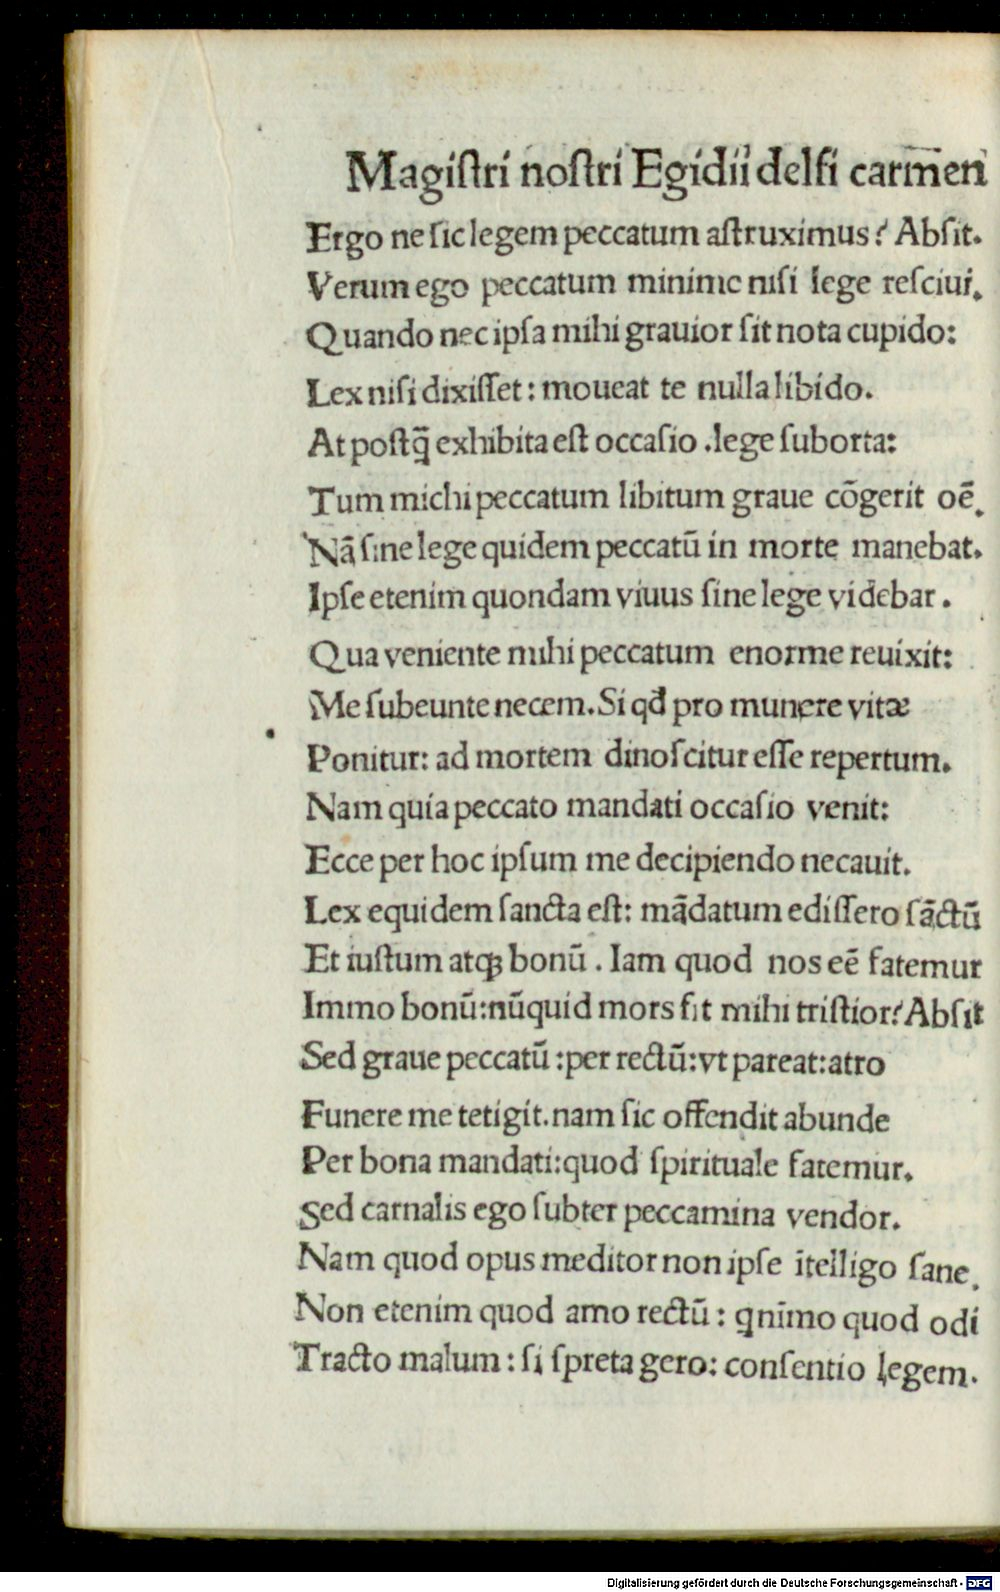 Magiſtri noſtri Egidii delfi carmen
Ergo ne ſic legem peccatum aſtruximus? Abſit.
Verum ego peccatum minime niſi lege reſciui.
Quando nec ipſa mihi grauior ſit nota cupido:
Lex niſi dixiſſet: moueat te nulla libido.
At poſtq̄ exhibita eſt occaſio .lege ſuborta:
Tum michi peccatum libitum graue cōgerit oē.
Nā ſine lege quidem peccatū in morte manebat.
Ipſe etenim quondam viuus ſine lege videbar.
Qua veniente mihi peccatum enorme reuixit:
Me ſubeunte necem. Si qđ pro munere vitæ
Ponitur: ad mortem dinoſcitur eſſe repertum.
Nam quia peccato mandati occaſio venit:
Ecce per hoc ipſum me decipiendo necauit.
Lex equidem ſancta eſt: mādatum ediſſero ſāctū
Et iuſtum atqꝫ bonū . Iam quod nos eē fatemur
Immo bonū: nūquid mors fit mihi triſtior? Abſit
Sed graue peccatū :per rectū: vt pareat: atro
Funere me tetigit. nam ſic offendit abunde
Per bona mandati: quod ſpirituale fatemur.
Sed carnalis ego ſubter peccamina vendor.
Nam quod opus meditor non ipſe ītelligo ſane.
Non etenim quod amo rectū : qnīmo quod odi
Tracto malum : ſi ſpreta gero: conſentio legem.
Digitalisierung gefördert durch die Deutsche Forschungsgemeinschaft - DFG